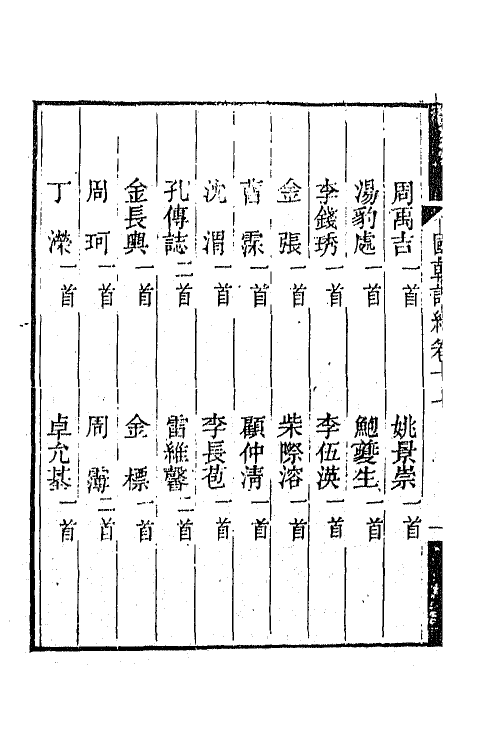 國朝詩綜卷十七
周禹吉一首 姚景崇一首
湯豹處一首 鮑夔生一首
李錢琇一首 李伍渶一首
金張一首 柴際溶一首
曹霂一首 顧仲清一首
沈渭一首 李長苞一首
孔傳誌二首 雷維馨二首
金長輿一首 金標一首
周珂一首 周𩆩二首
丁濚一首 卓允基一首